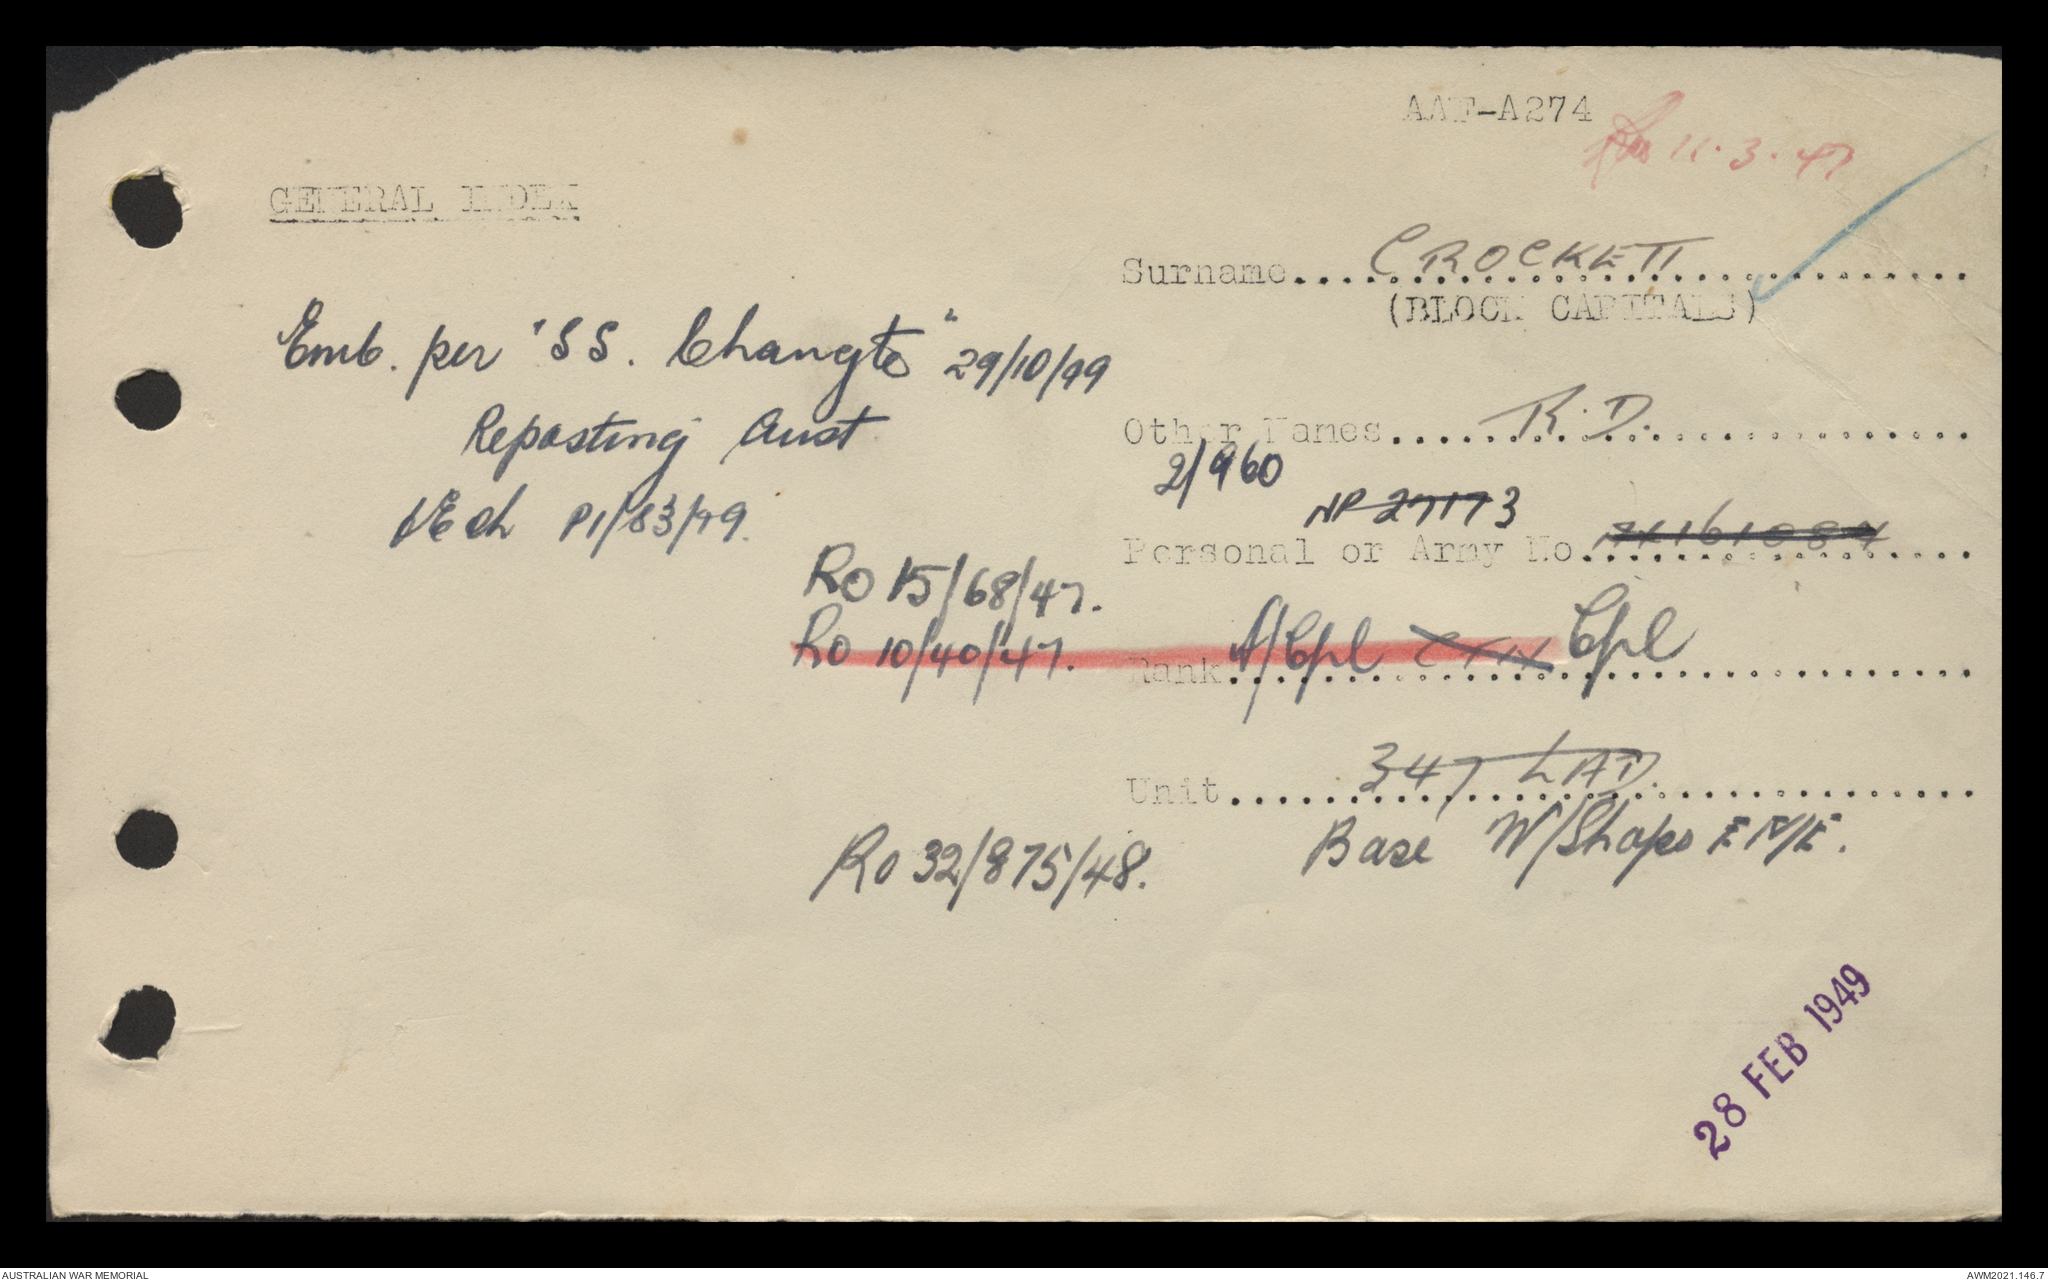 AAF-A274
11.3.47
GENERAL INDEX
Surname.... CROCKETT
(BLOCK CAPITALS)
Emb. per "SS. Changte" 29/10/49
Other Names.... R.D.
Reposting Aust
2/960
NP 27173
Ech P1/83/49.
Personal or Army No.
Ro 15/68/47.
Ro 10/40/47.
Rank. A/Cpl Cpl
Unit.... 347 LAD.
Ro 32/875/48.
Base W/Shops
28 FEB 1949
AUSTRALIAN WAR MEMORIAL
AWM2021.146.7